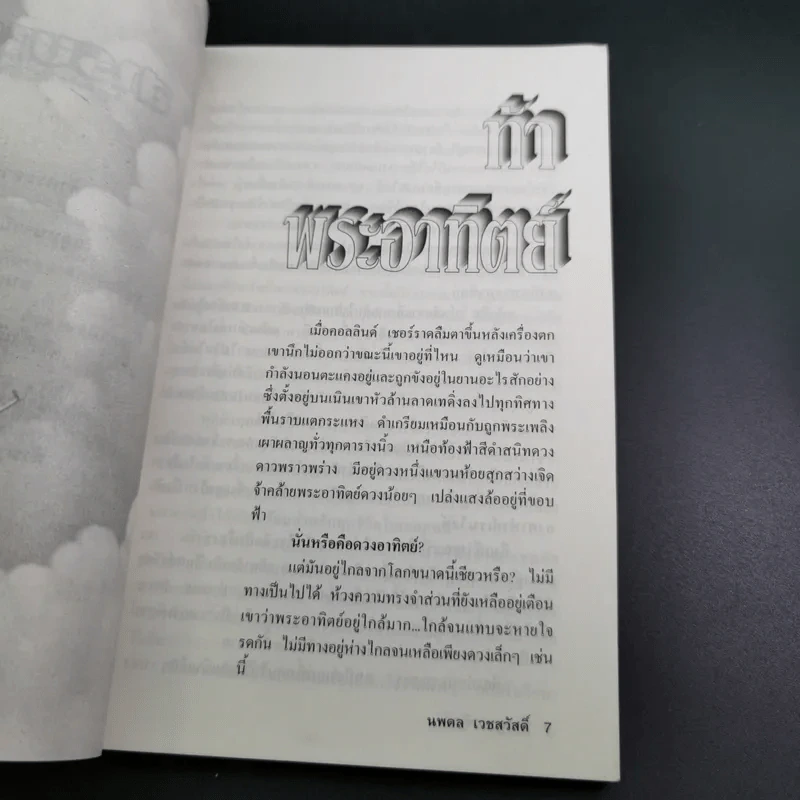 ท้า
พระอาทิตย์
เมื่อคอลลินด์ เชอร์ราดลืมตาขึ้นหลังเครื่องตก
เขานึกไม่ออกว่าขณะนี้เขาอยู่ที่ไหน ดูเหมือนว่าเขา
กำลังนอนตะแคงอยู่และถูกขังอยู่ในยานอะไรสักอย่าง
ซึ่งตั้งอยู่บนเนินเขาหัวล้านลาดเทดิ่งลงไปทุกทิศทาง
พื้นราบแตกระแหง ดำเกรียมเหมือนกับถูกพระเพลิง
เผาผลาญทั่วทุกตารางนิ้ว เหนือท้องฟ้าสีดำสนิทดวง
ดาวพราวพร่าง มีอยู่ดวงหนึ่งแขวนห้อยสุกสว่างเจิด
จ้าคล้ายพระอาทิตย์ดวงน้อยๆ เปล่งแสงล้ออยู่ที่ขอบ
ฟ้า
นั่นหรือคือดวงอาทิตย์?
แต่มันอยู่ไกลจากโลกขนาดนี้เชียวหรือ? ไม่มี
ทางเป็นไปได้ ห้วงความทรงจำส่วนที่ยังเหลืออยู่เตือน
เขาว่าพระอาทิตย์อยู่ใกล้มาก...ใกล้จนแทบจะหายใจ
รดกัน ไม่มีทางอยู่ห่างไกลจนเหลือเพียงดวงเล็กๆ เช่น
นี้
นพดล เวชสวัสดิ์ 7